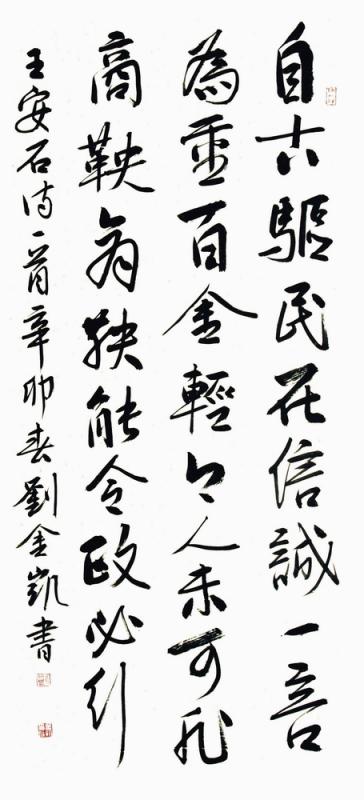 自古驅民在信誠一言
為重百金輕今人未可非
商鞅商鞅能令政必行
王安石诗一首辛卯春劉金凱書